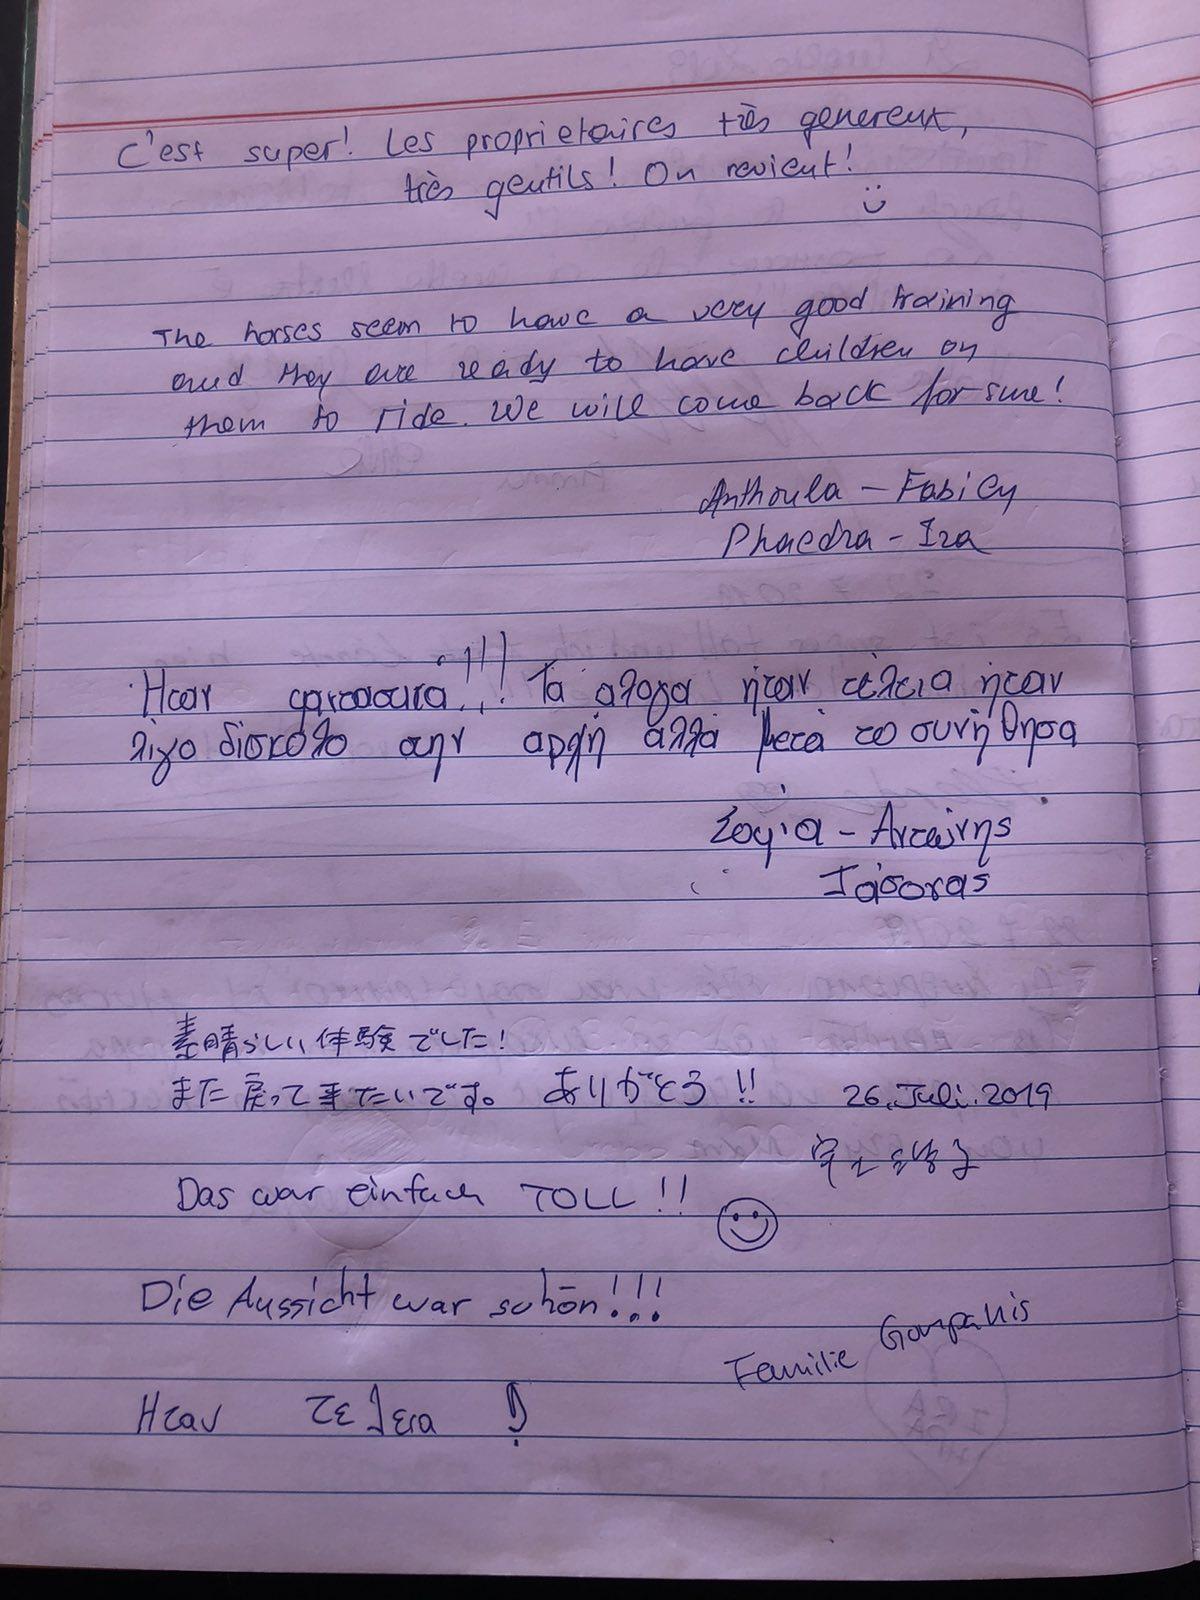 C'est super! Les proprietaires très genereux,
très gentils! On revient!
The horses seem to have a very good training
and they are ready to have children on
them to ride. We will come back for sure!
Anthoula - Fabien
Phaedra - Iza
Ηταν φανταστικα!!! Τα αλογα ήταν τέλεια ήταν
λιγο δίσκολο στην αρχή αλλά μετά το συνήθησα
Σοφία - Αντώνης
Ιάσονας
素晴らしい体験でした!
また戻って来たいです。 ありがとう!! 26. Juli. 2019
Das war einfach TOLL!!
Die Aussicht war schön!!!
Familie
Ηταν τελεια!